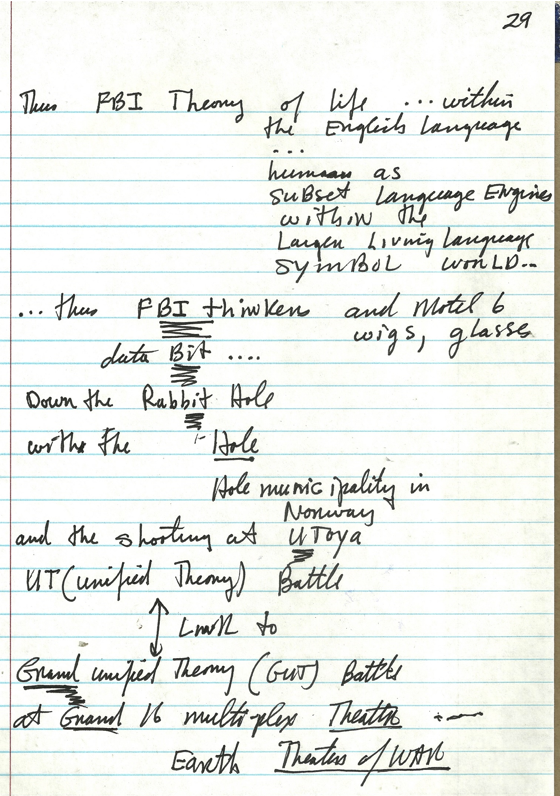 29
Thus FBI Theory of life ... within
the English Language
...
human as
Subset Language Engines
within the
Larger Living Language
SYMBOL WORLD...
... thus FBI thinkers and Motel 6
wigs, glasses
data Bit ....
Down the Rabbit Hole
with the Hole
Hole municipality in
Norway
and the shooting at UToya
UT (unified Theory) Battle
Link to
Grand unified Theory (GUT) Battle
at Grand 16 multiplex Theatre
Earth Theaters of WAR